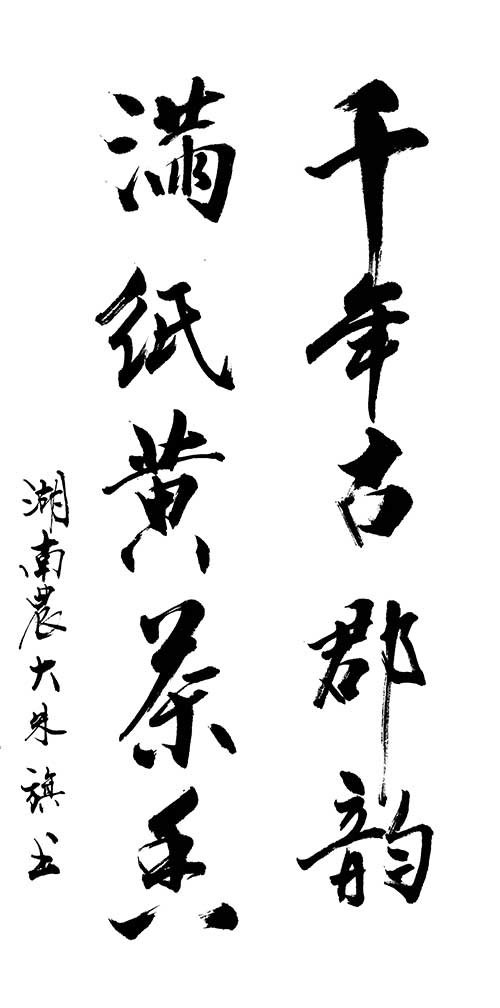 千年古郡韵
满纸黄茶香
湖南農大朱旗书